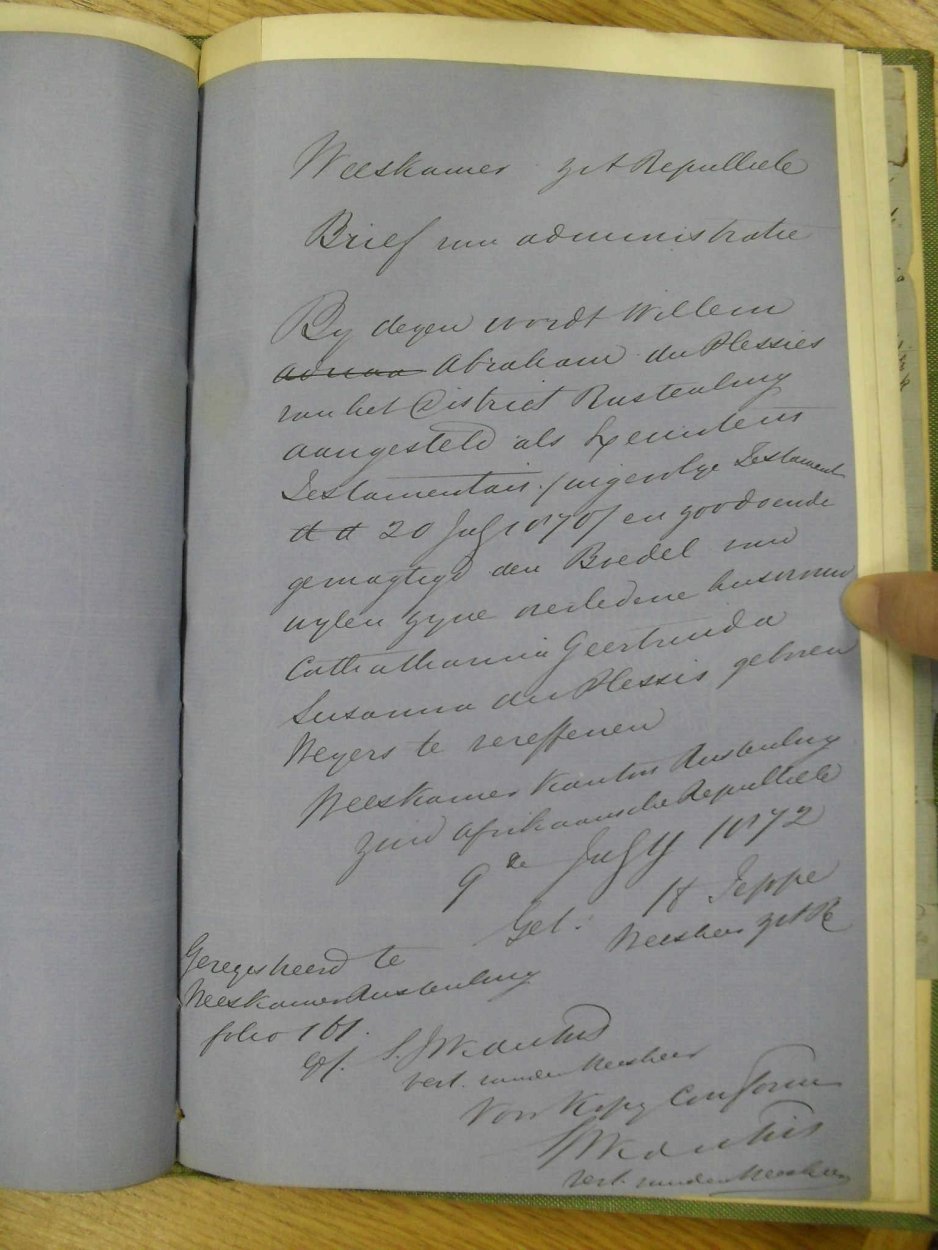 Weeskamer ZA Republiek
Brief van administratie
By dezen wordt Willem
Abraham du Plessies
van het District Rustenburg
aangesteld als Executeur
Testamentair /ingevolge Testament
dd 20 July 1870/ en zoodoende
gemagtigd den Boedel van
wylen zyne overledene huisvrouw
Cathatharina Geertruida
Susanna du Plessis geboren
Weyers te vereffenen
Weeskamer Kantoor Rustenburg
Zuid Afrikaansche Republiek
9de July 1872
Get: H Jeppe
Weesheer ZAR
Geregistreerd te
Weeskamer Rustenburg
folio 161.
vert. van den Weesheer
Voor Kopy Conform
vert. van den Weesheer